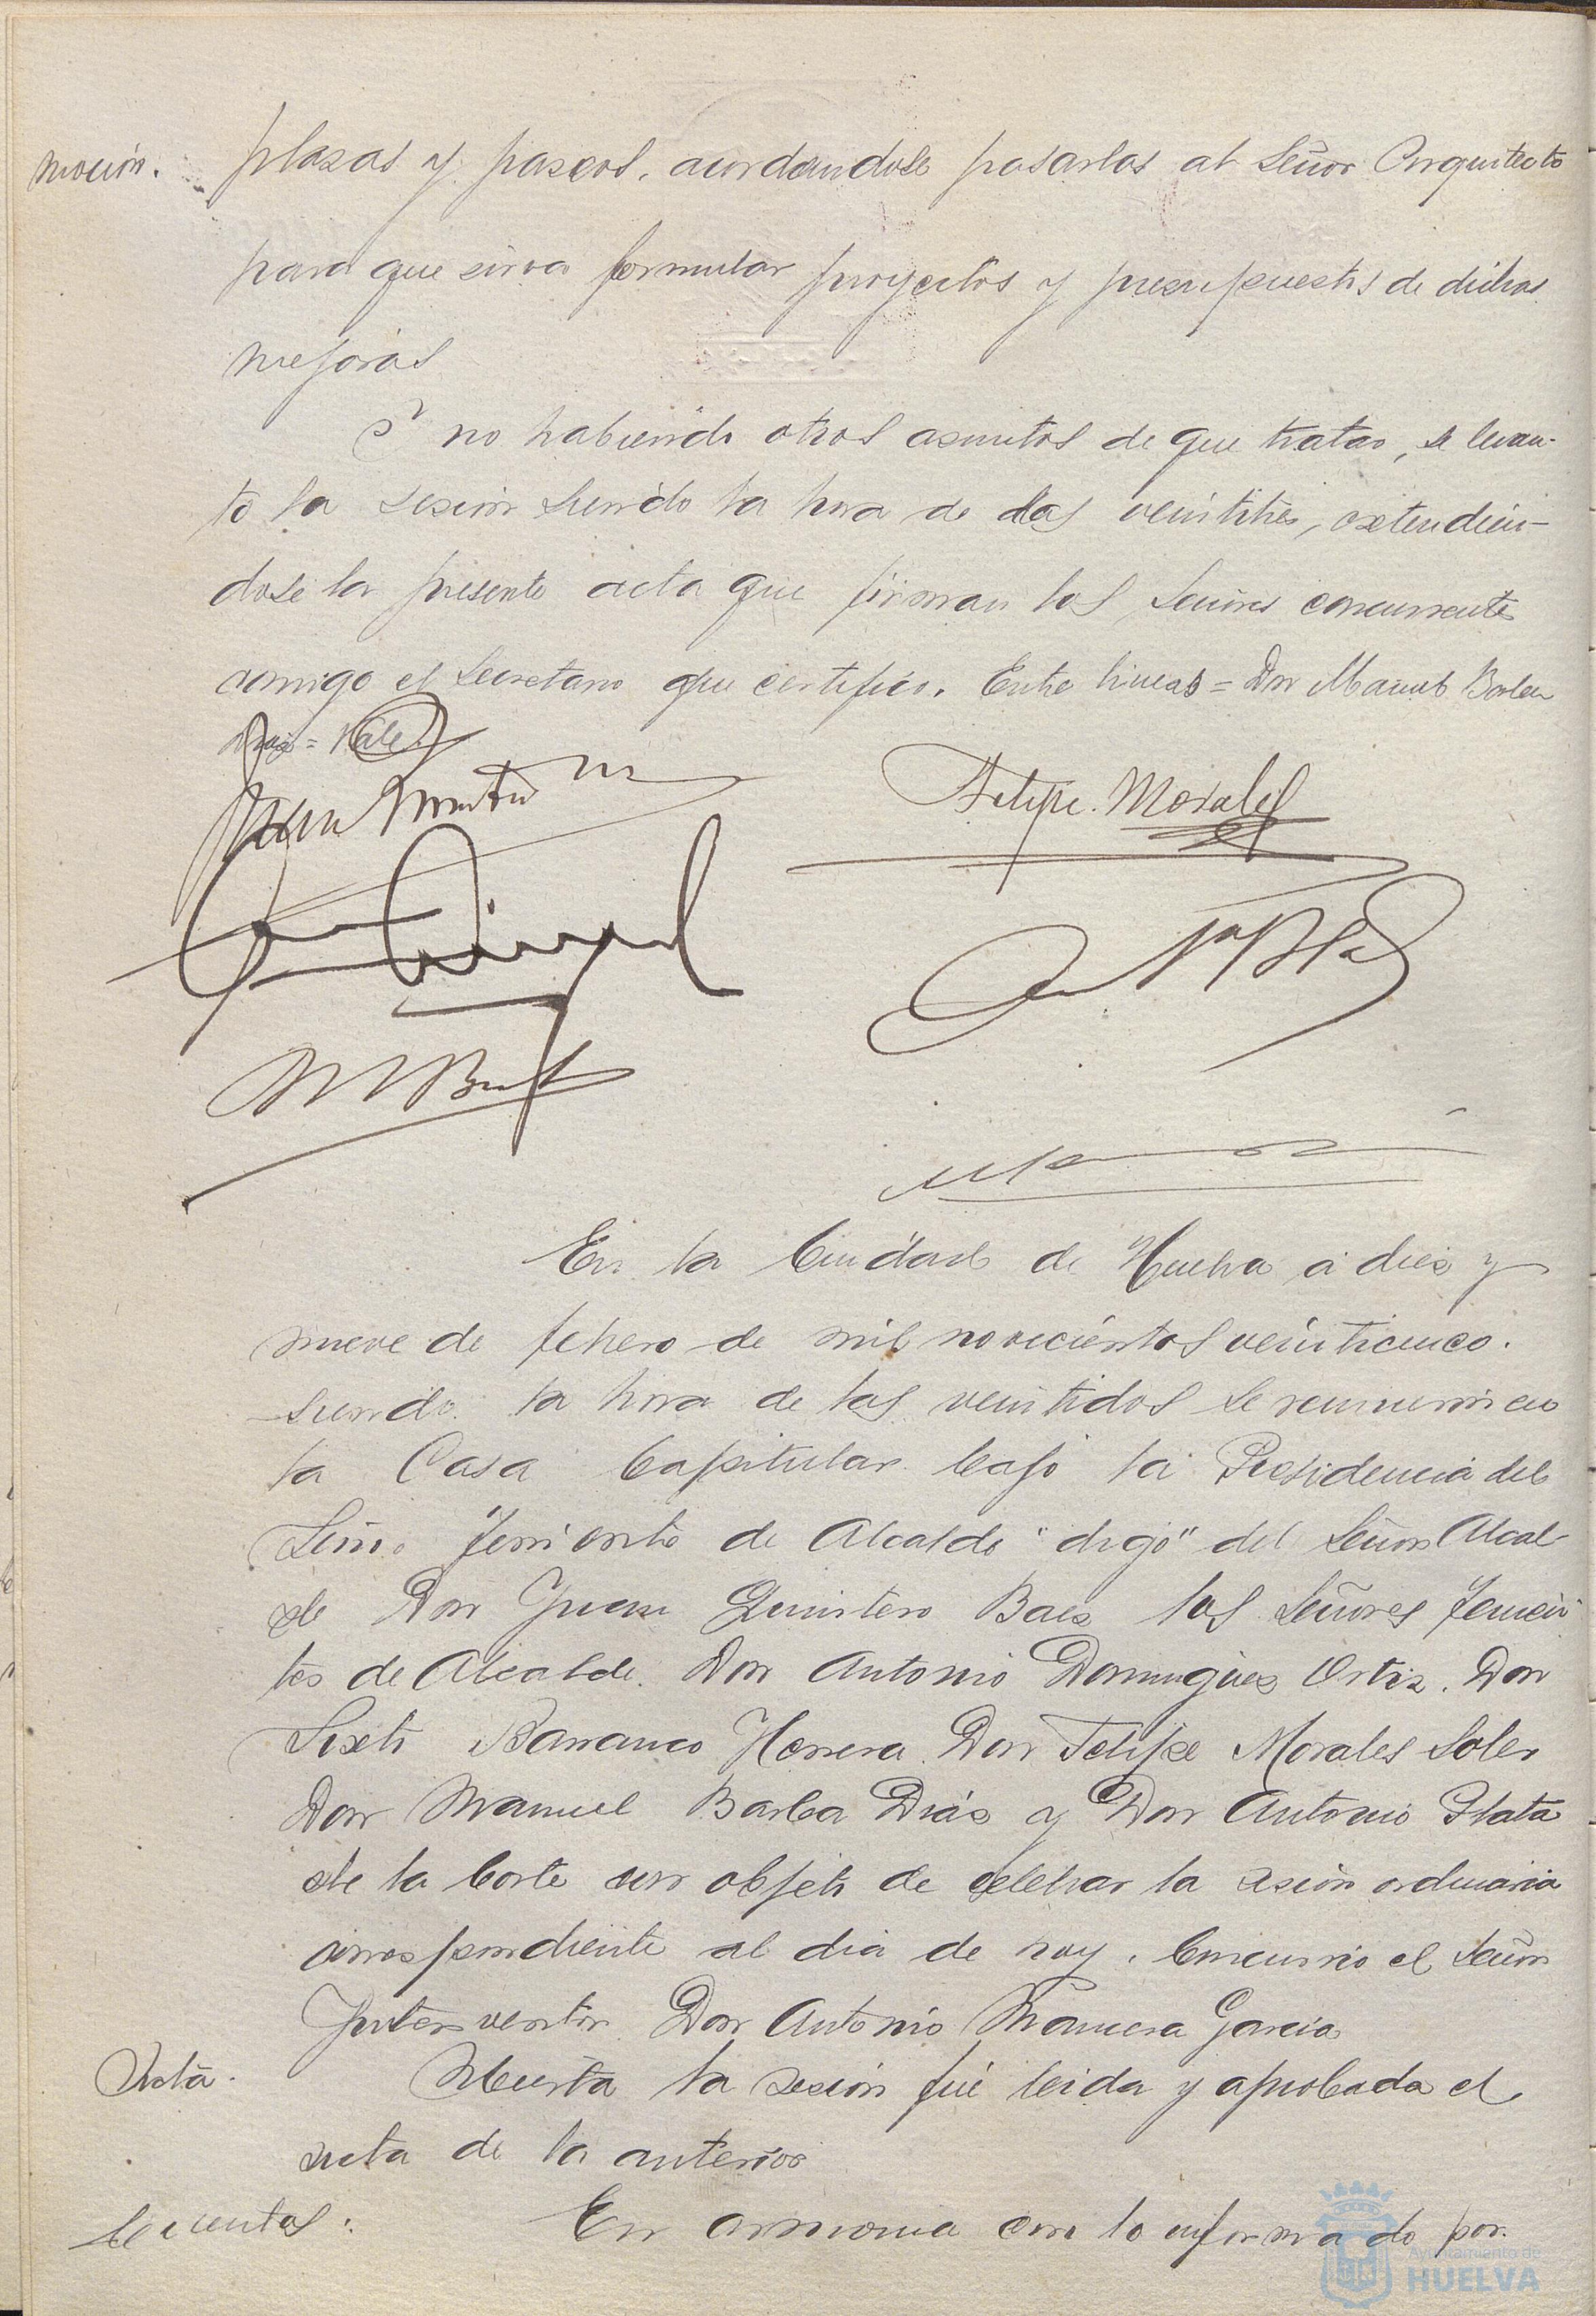 moción.
plazas y paseos, acordandose pasarlos al Señor Arquitecto
para que sirva formular proyectos y presupuestos de dichas
mejoras
Y no habiendo otros asuntos de que tratar, se levan-
tó la sesion siendo la hora de las veintitrés, extendien-
dose la presente acta que firman los Señores concurrentes
conmigo el Secretario que certifico. Entre lineas = Don Manuel Barba
Diaz = Vale
Felipe. Morales
En la Ciudad de Huelva á diez y
nueve de febrero de mil novecientos veinticinco.
siendo la hora de las veintidos se reunieron en
la Casa Capitular bajo la Presidencia del
Señor Teniente de Alcalde "digo" del Señor Alcal-
de Don Juan Quintero Baez los Señores Tenien-
tes de Alcalde. Don Antonio Dominguez Ortiz. Don
Sixto Barranco Herrera Don Felipe Morales Soler
Don Manuel Barba Diáz y Don Antonio Plata
de la Corte con objeto de celebrar la sesion ordinaria
correspondiente al dia de hoy. Concurrio el Señor
Interventor Don Antonio Mancera Garcia
Acta.
Abierta la sesión fué leida y aprobada el
acta de la anterior
Cuentas.
En armonia con lo informado por
Ayuntamiento de
HUELVA